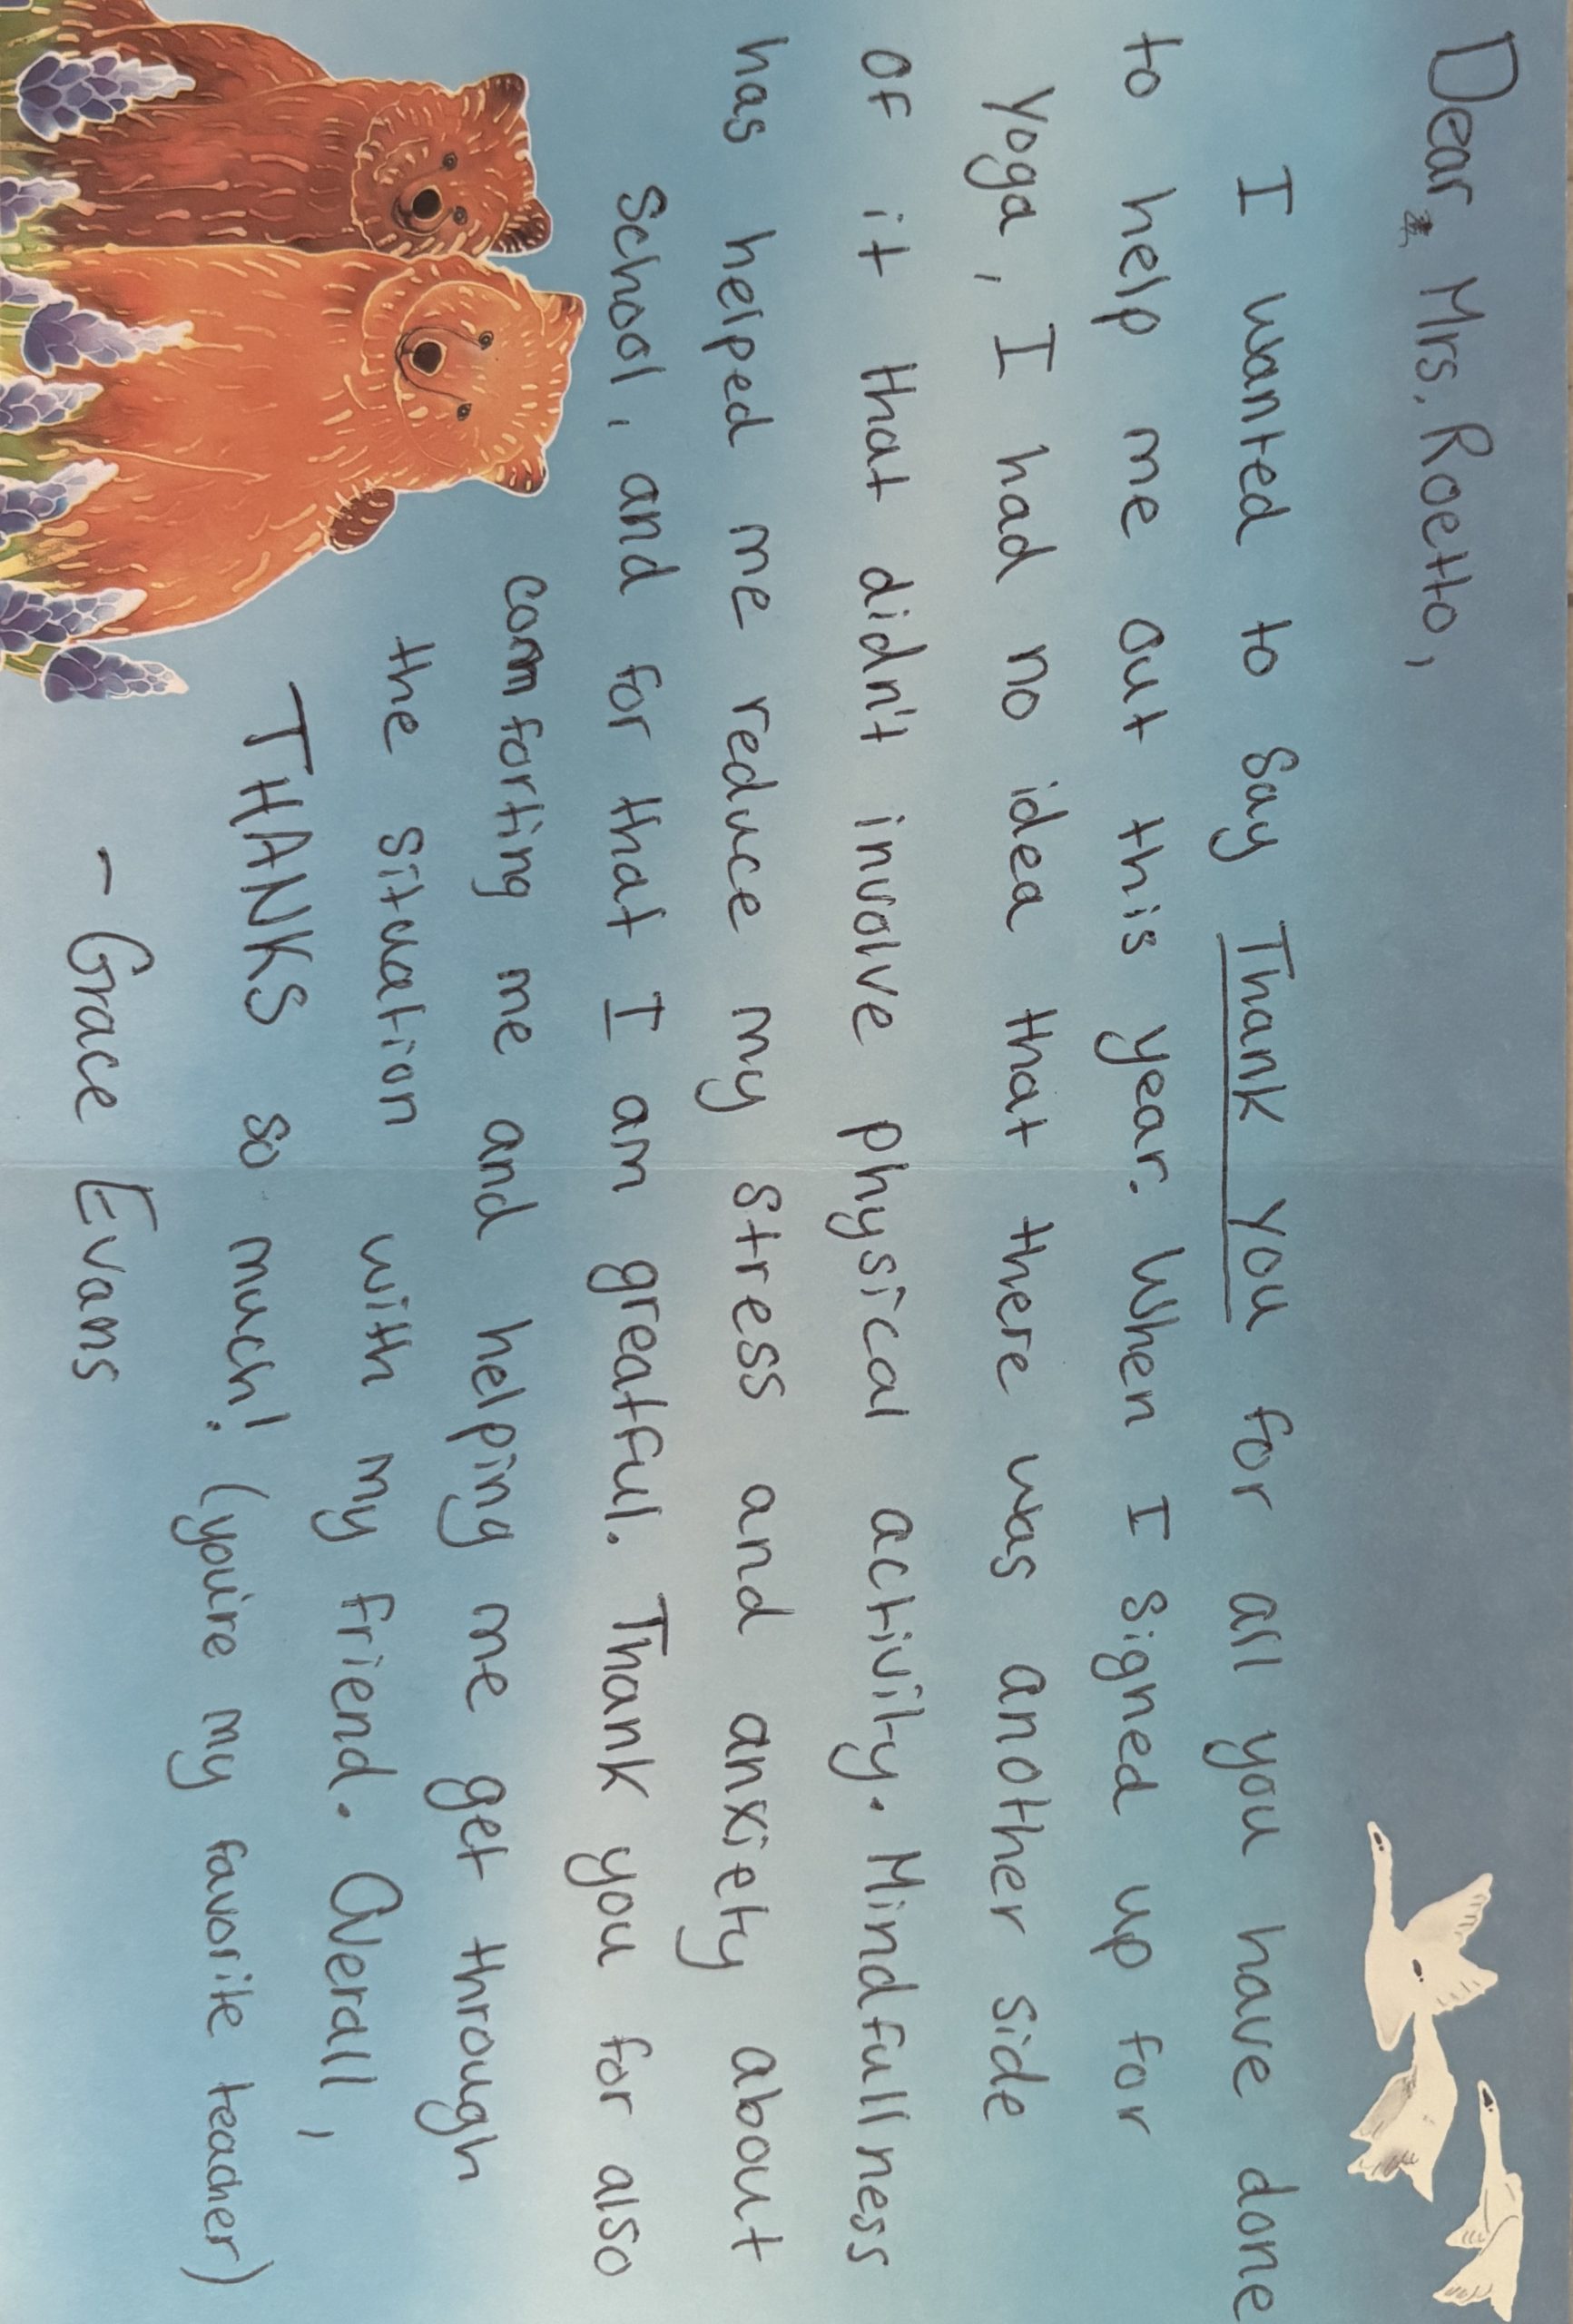 Dear, Mrs. Roetto,
I wanted to say Thank You for all you have done
to help me out this year. When I signed up for
Yoga, I had no idea that there was another side
of it that didn't involve physical activity. Mindfullness
has helped me reduce my stress and anxiety about
school, and for that I am greatful. Thank you for also
comforting me and helping me get through
the situation with my friend. Overall,
THANKS so much! (you're my favorite teacher)
- Grace Evans